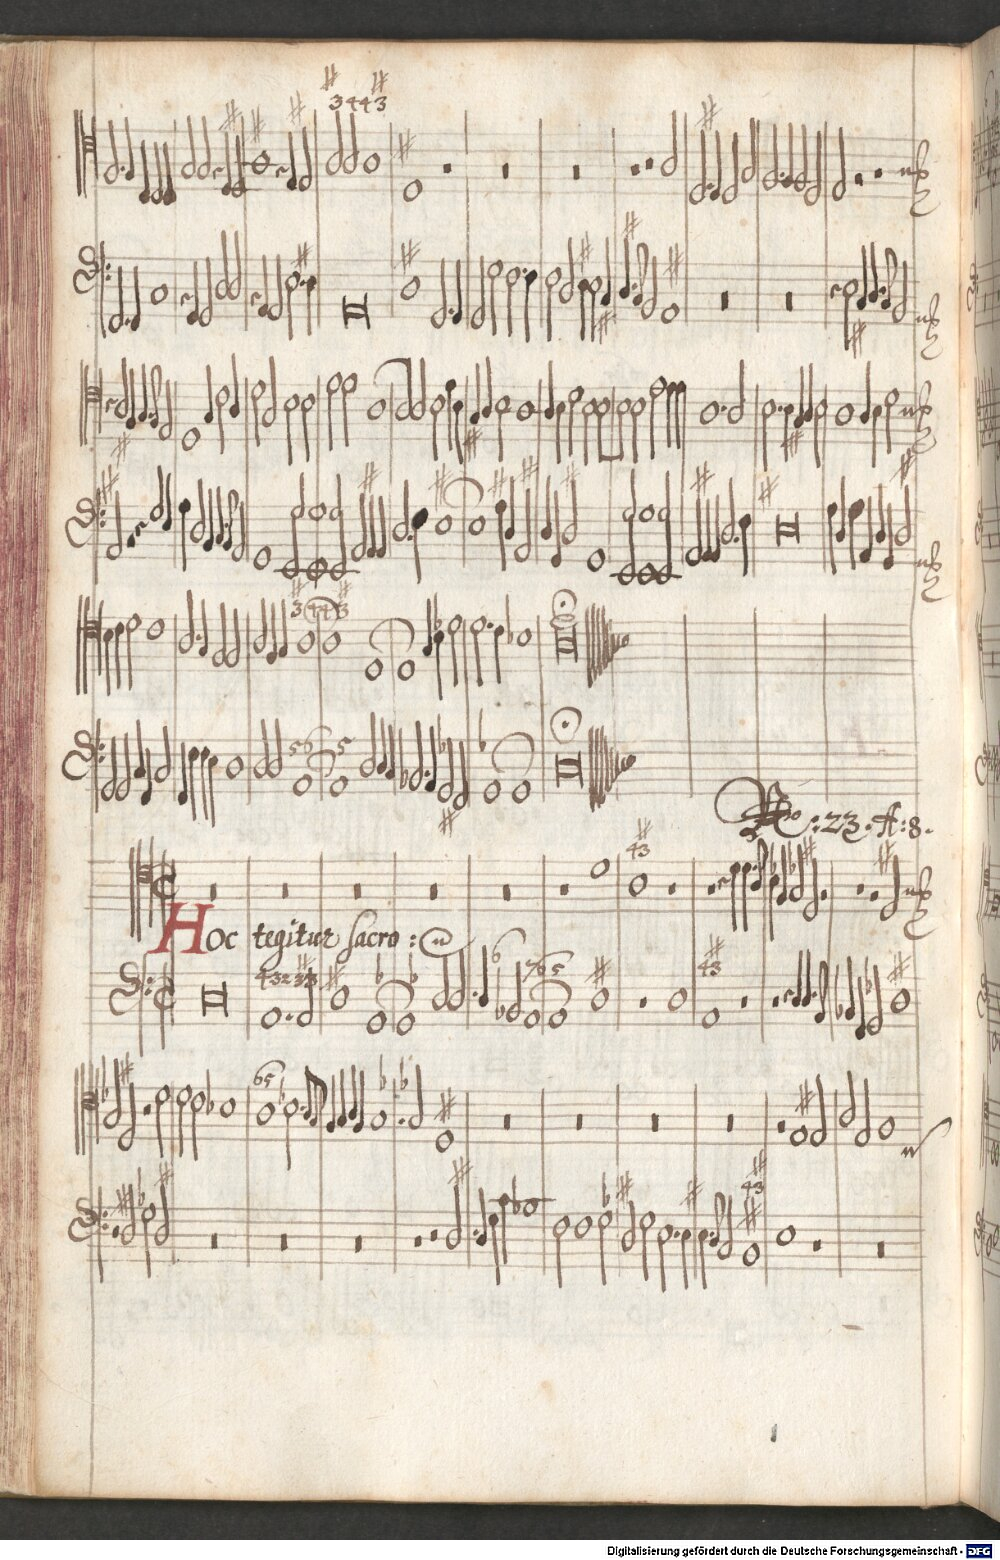 3443
3443
56 5
No: 23. A: 8.
43
Hoc tegitur sacro:
43 2 3 43
6
765
43
65
43
Digitalisierung gefördert durch die Deutsche Forschungsgemeinschaft - DFG